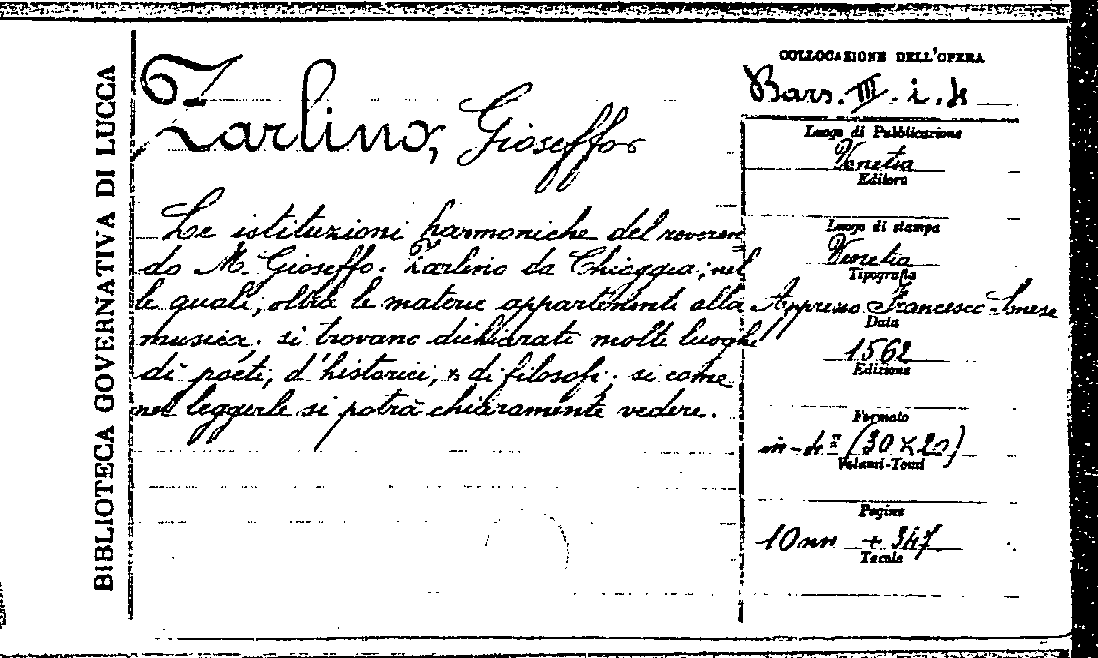 BIBLIOTECA GOVERNATIVA DI LUCCA
Zarlino, Gioseffo
Le istituzioni harmoniche del reveren
do M. Gioseffo Zarlino da Chioggia; nel
le quali, oltra le materie appartenenti alla
musica, si trovano dichiarati molti luoghi
di poeti, d'historici, & di filosofi; si come
nel leggerle si potrà chiaramente vedere.
COLLOCAZIONE DELL'OPERA
Bars. III. i. 4
Luogo di Pubblicazione
Venetia
Editore
Luogo di stampa
Venetia
Tipografia
Appresso Francesco Senese
Data
1562
Edizione
Formato
in-4º (30 x 20)
Volumi-Tomi
Pagine
10 nn + 347
Tavole